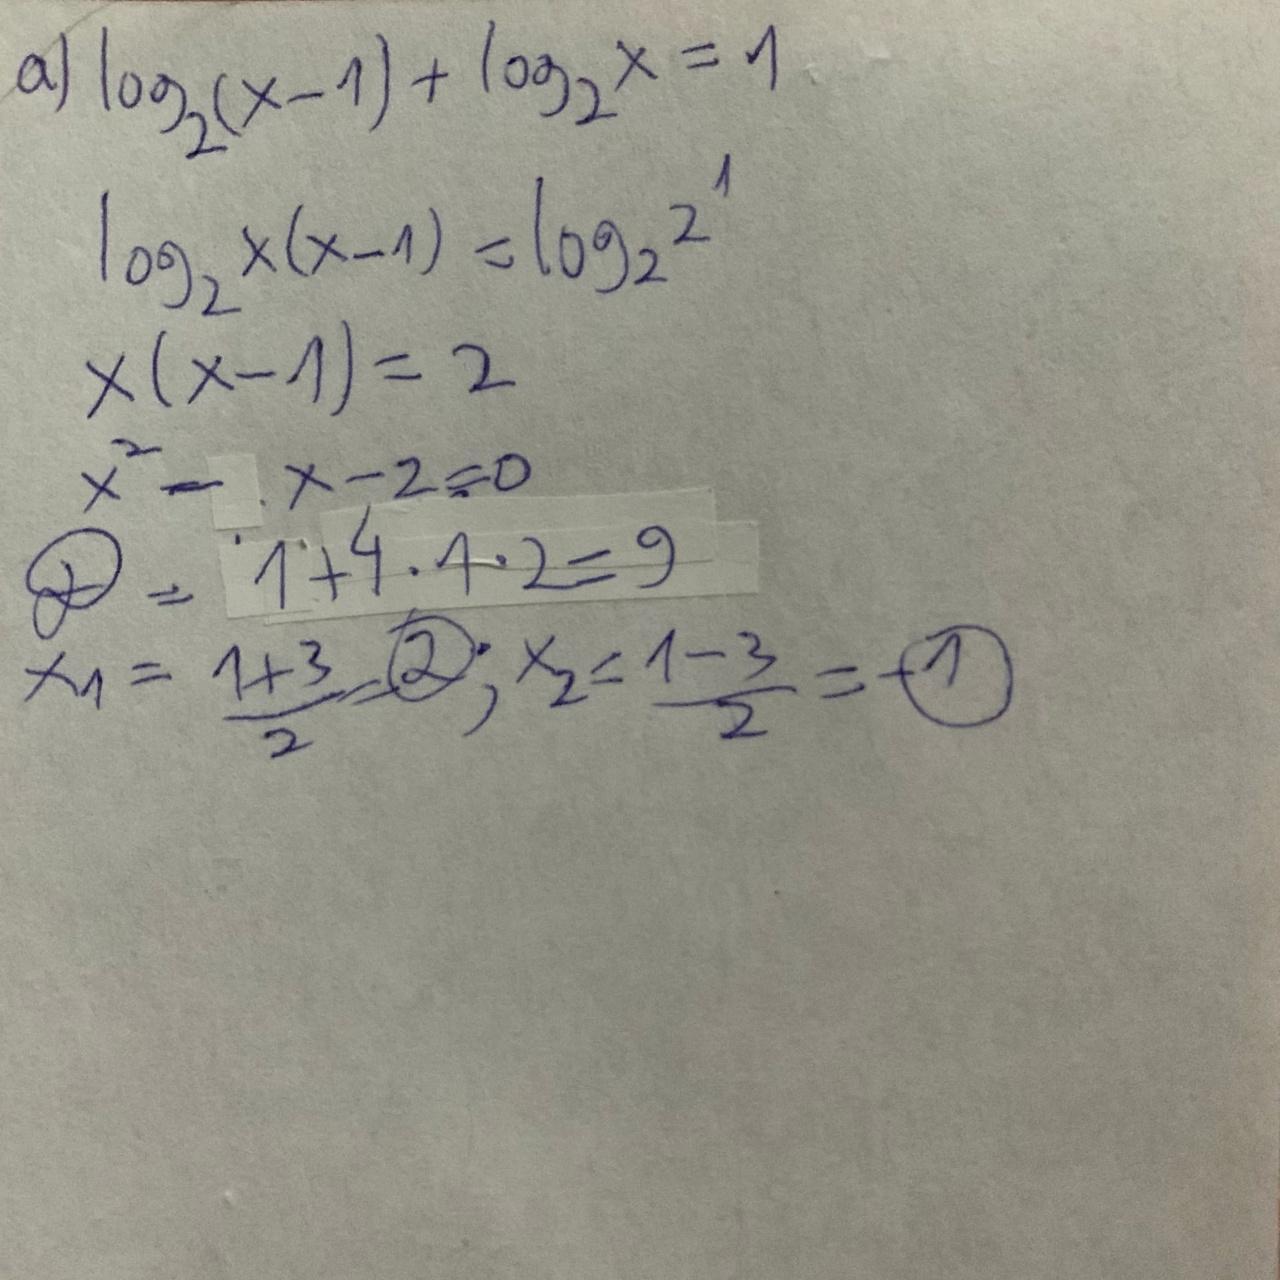 a) log₂(x-1) + log₂x = 1
log₂x(x-1) = log₂2¹
x(x-1) = 2
x² - x - 2 = 0
= 1+4·1·2 = 9
x₁ = (1+3)/2 = 2; x₂ = (1-3)/2 = -1